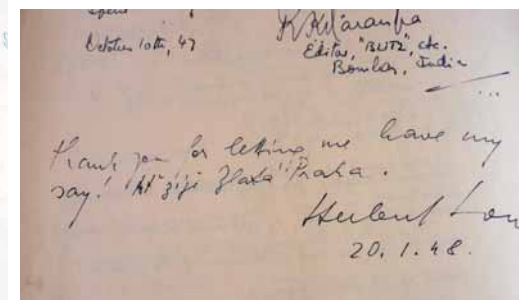 October 10th, 47
R K Karanjia
Editor, "BLITZ", etc.
Bombay, India
Thank you for letting me have my
say! Ať žije Zlatá Praha.
Herbert Lom
20. 1. 48.